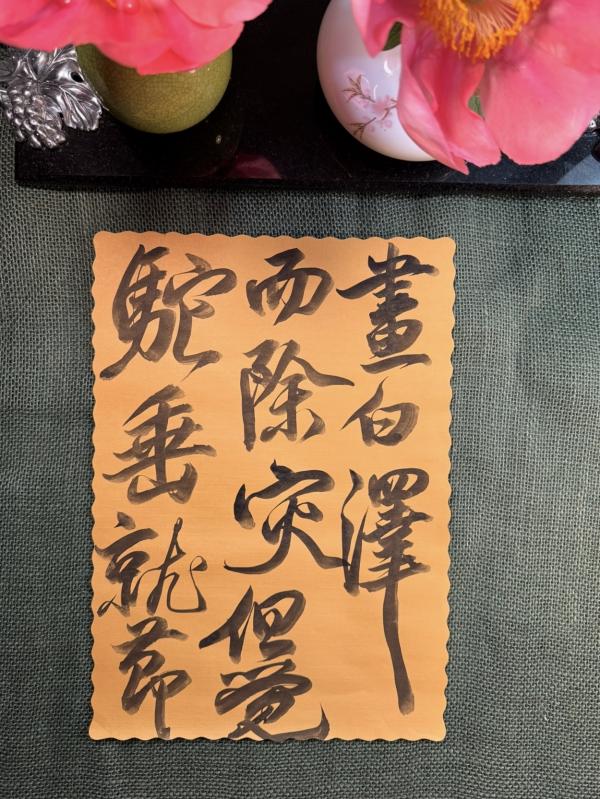 畫白澤
而除灾但覺
駝垂就節